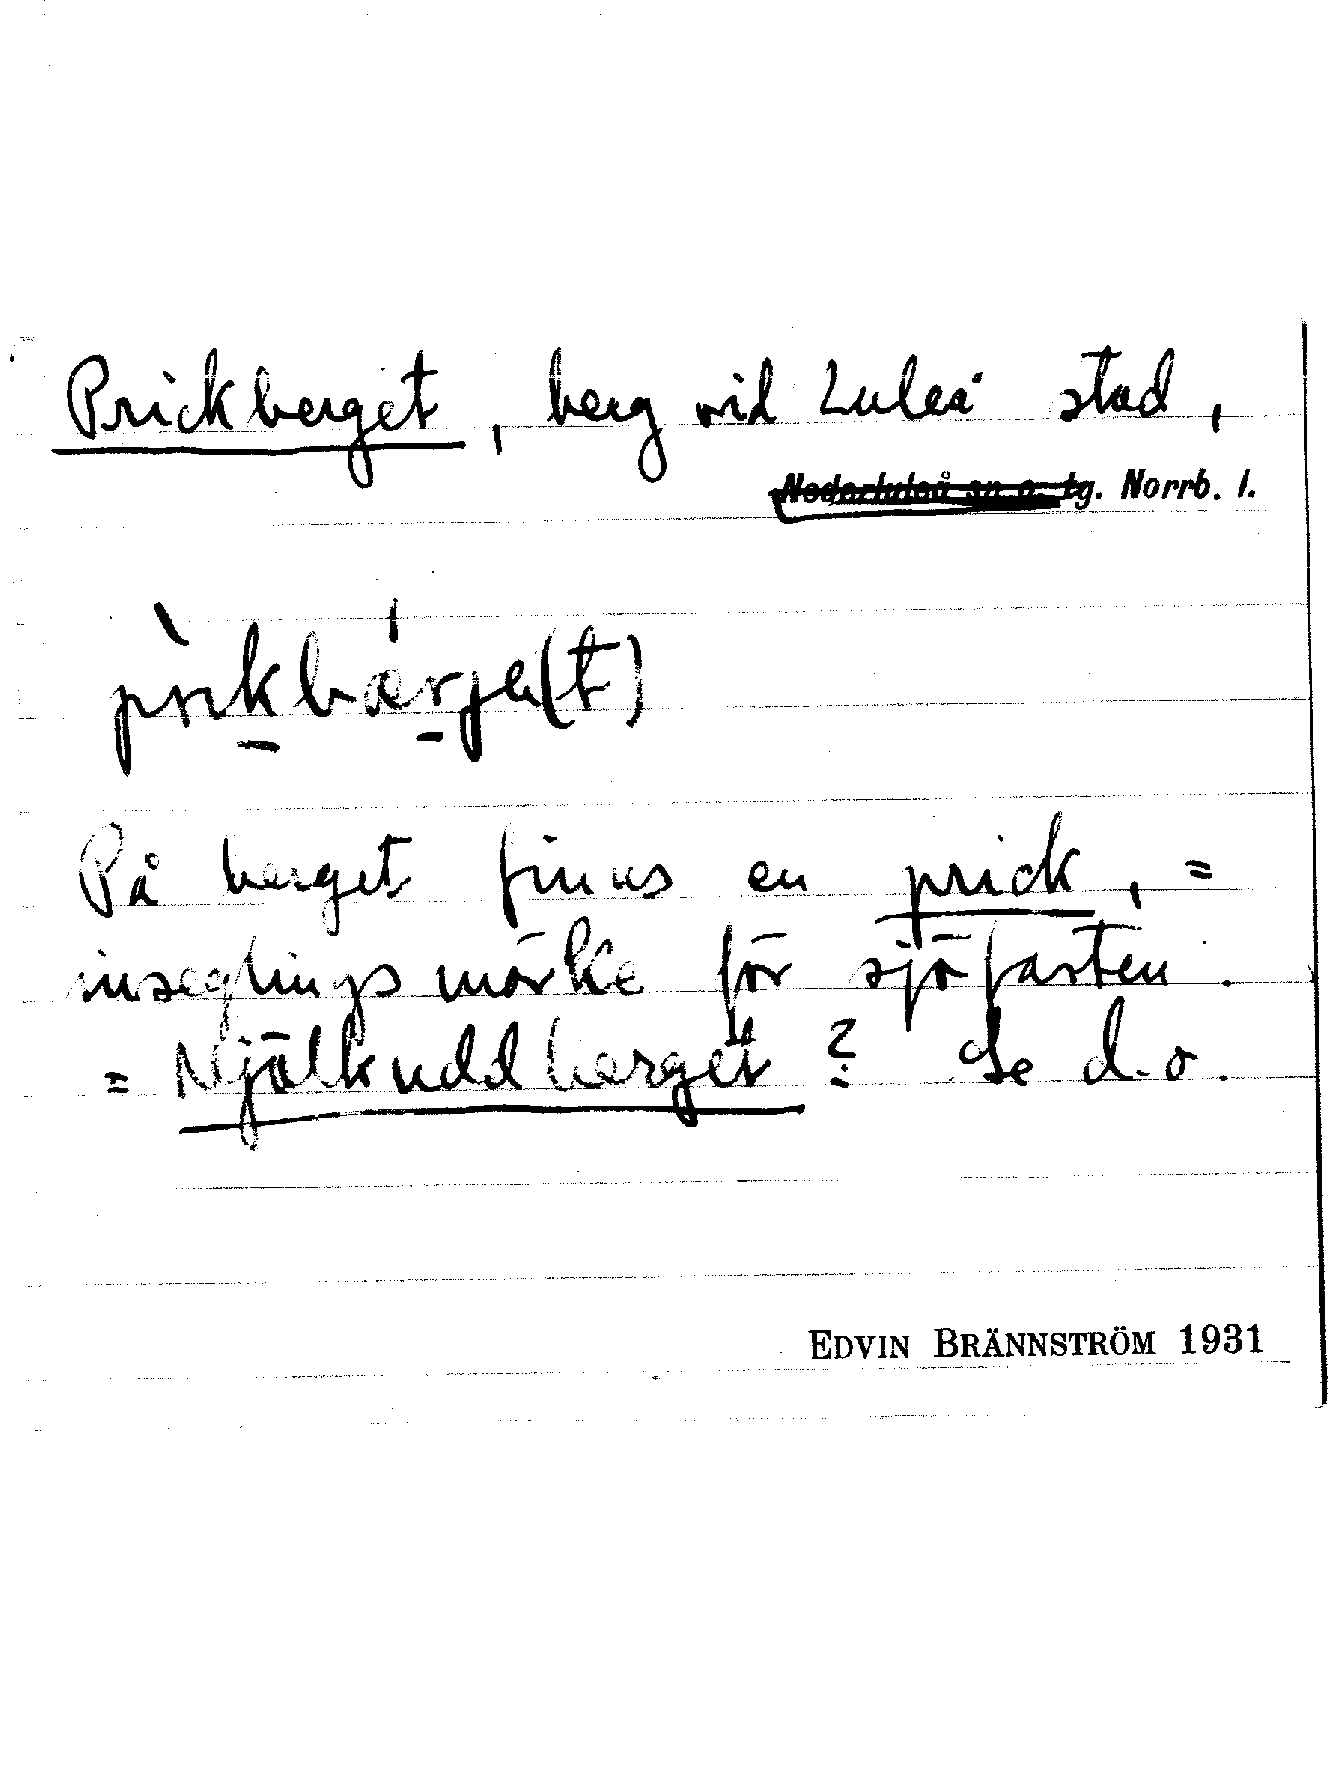 Prickberget, berg vid Luleå stad,
Nederluleå sn o. tg. Norrb. l.
prikbærje(t)
På berget finns en prick, =
inseglingsmärke för sjöfarten.
= Mjölkuddberget? Se d.o.
EDVIN BRÄNNSTRÖM 1931